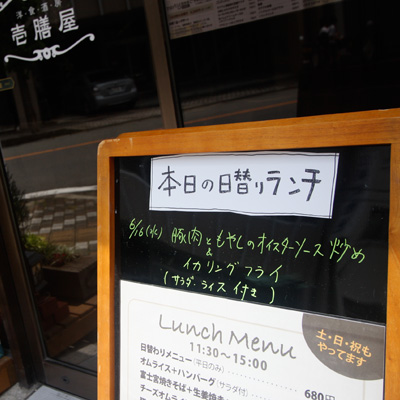 洋・食・酒・房
壱膳屋
本日の日替りランチ
6/16(火) 豚肉ともやしのオイスターソース炒め
&
イカリングフライ
(サラダ・ライス付き)
Lunch Menu
11:30〜15:00
土・日・祝も
やってます
日替わりメニュー(平日のみ)
680円
オムライス+ハンバーグ(サラダ付)
富士宮焼きそば+生姜焼き
チーズオムライ